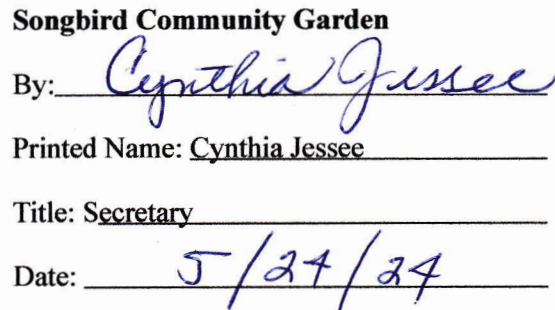 Songbird Community Garden
By: Cynthia Jessee
Printed Name: Cynthia Jessee
Title: Secretary
Date: 5/24/24